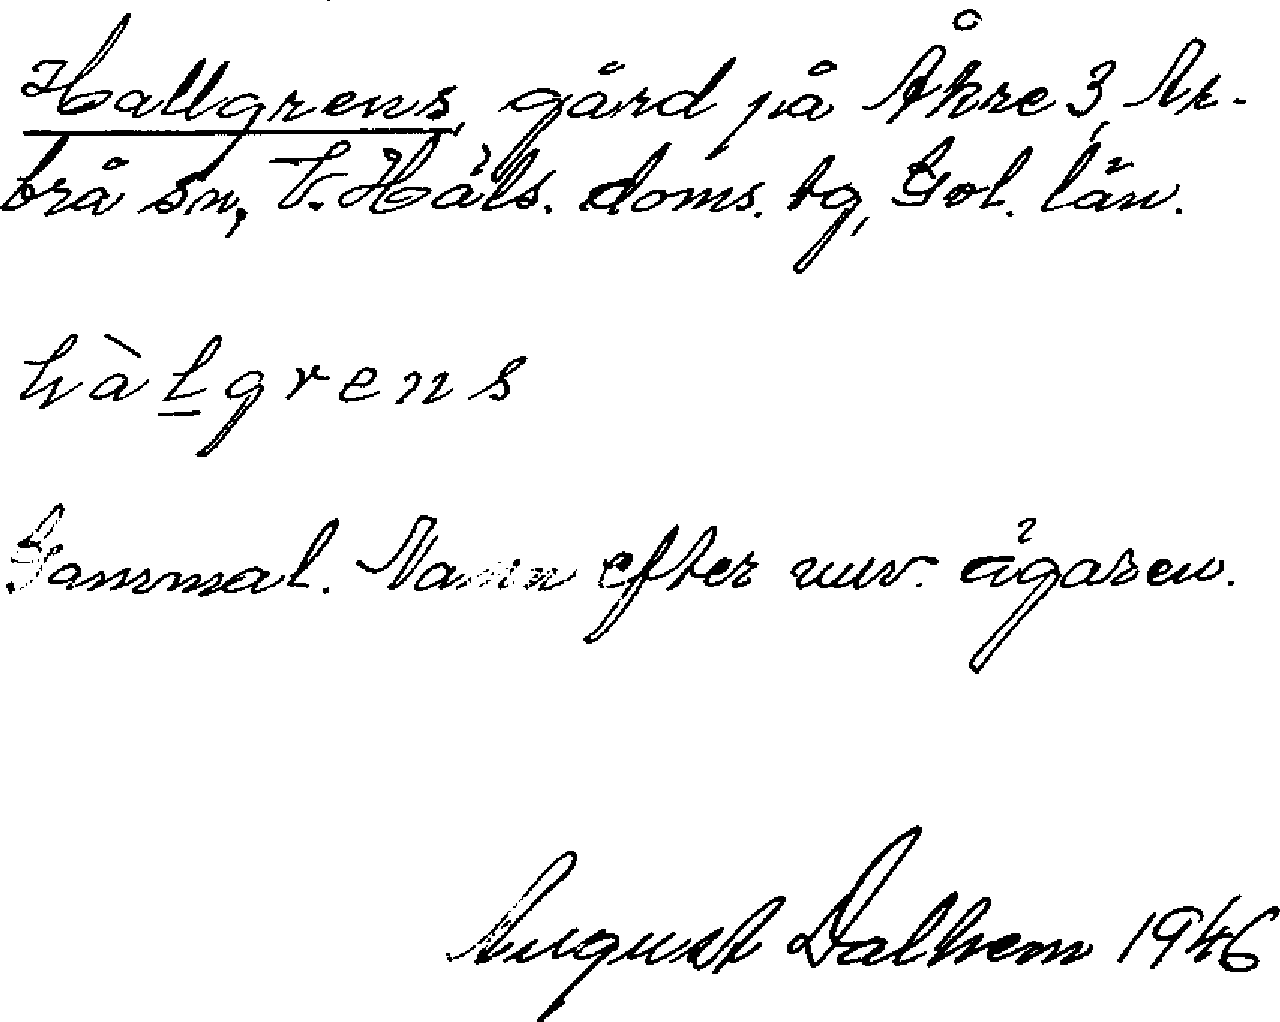 Hallgrens, gård på Åkre 3, Ar-
brå sn, V. Häls. doms. bg, Gvl. län.
hàlgrens
Gammal. Namn efter nuv. ägaren.
August Dalhem 1946